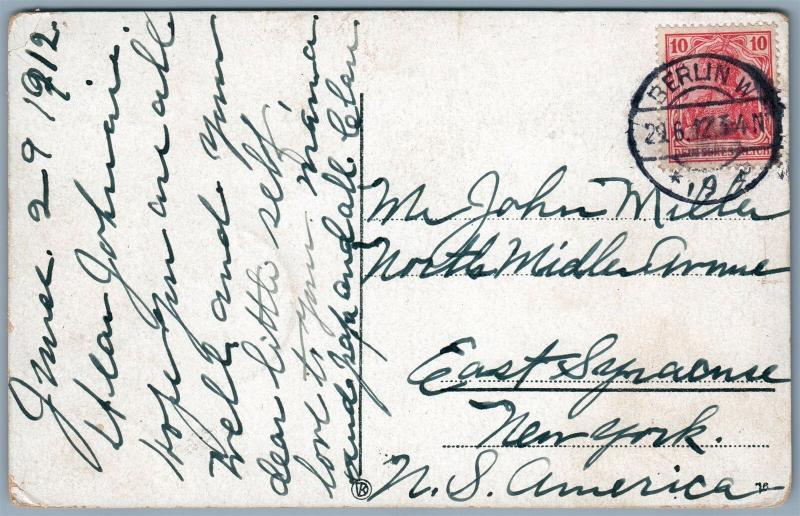 June. 29 1912.
Dear Johnnie.
hope you are all
well and your
dear little self.
love to your mama
and papa and all Clen
10 10
BERLIN W.
29.6.12.3-4N
DEUTSCHES REICH
Mr John Miller
North Midler Avenue
East Syracuse
New York.
N. S. America